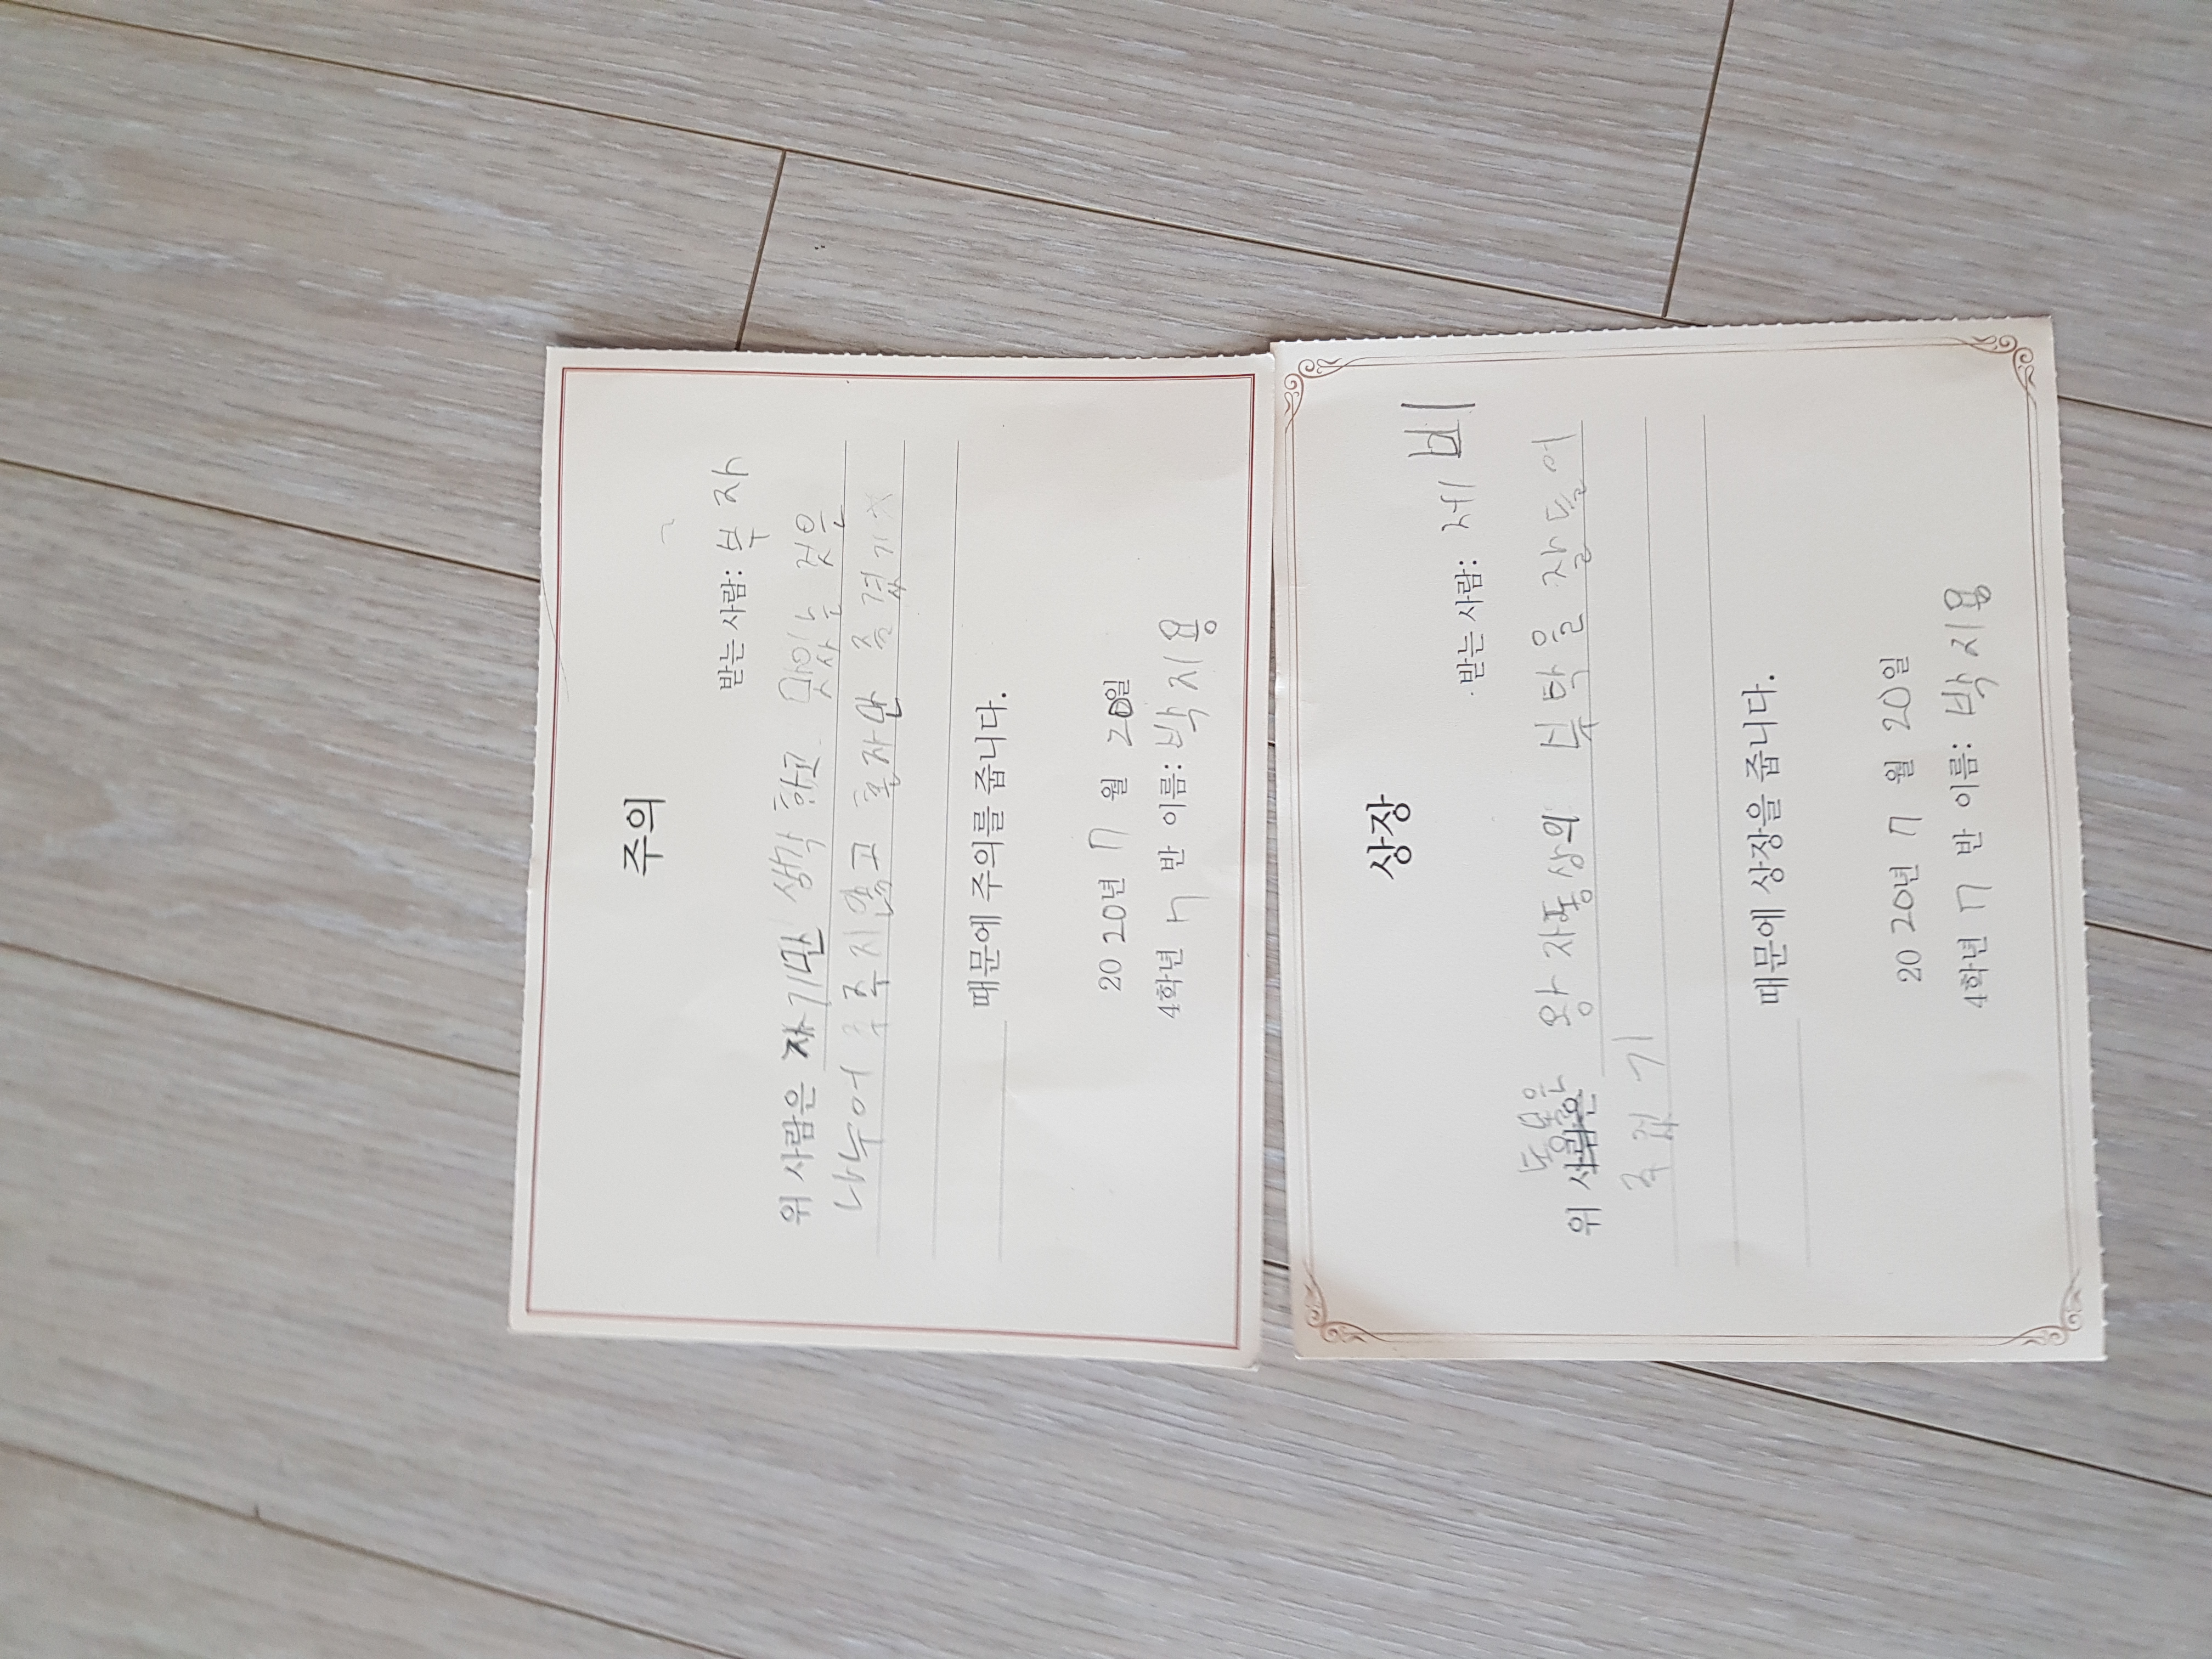 주의
받는 사람: 부자
위 사람은 자기만 생각 하고 맛있는 것을
나누어 주지않고 혼자만 즐겼기
때문에 주의를 줍니다.
2020년 7월 20일
4학년 7반 이름: 박지용
상장
받는 사람: 제비
위 동물은 왕자동상의 부탁을 잘들어
주었기
때문에 상장을 줍니다.
2020년 7월 20일
4학년 7반 이름: 박지용